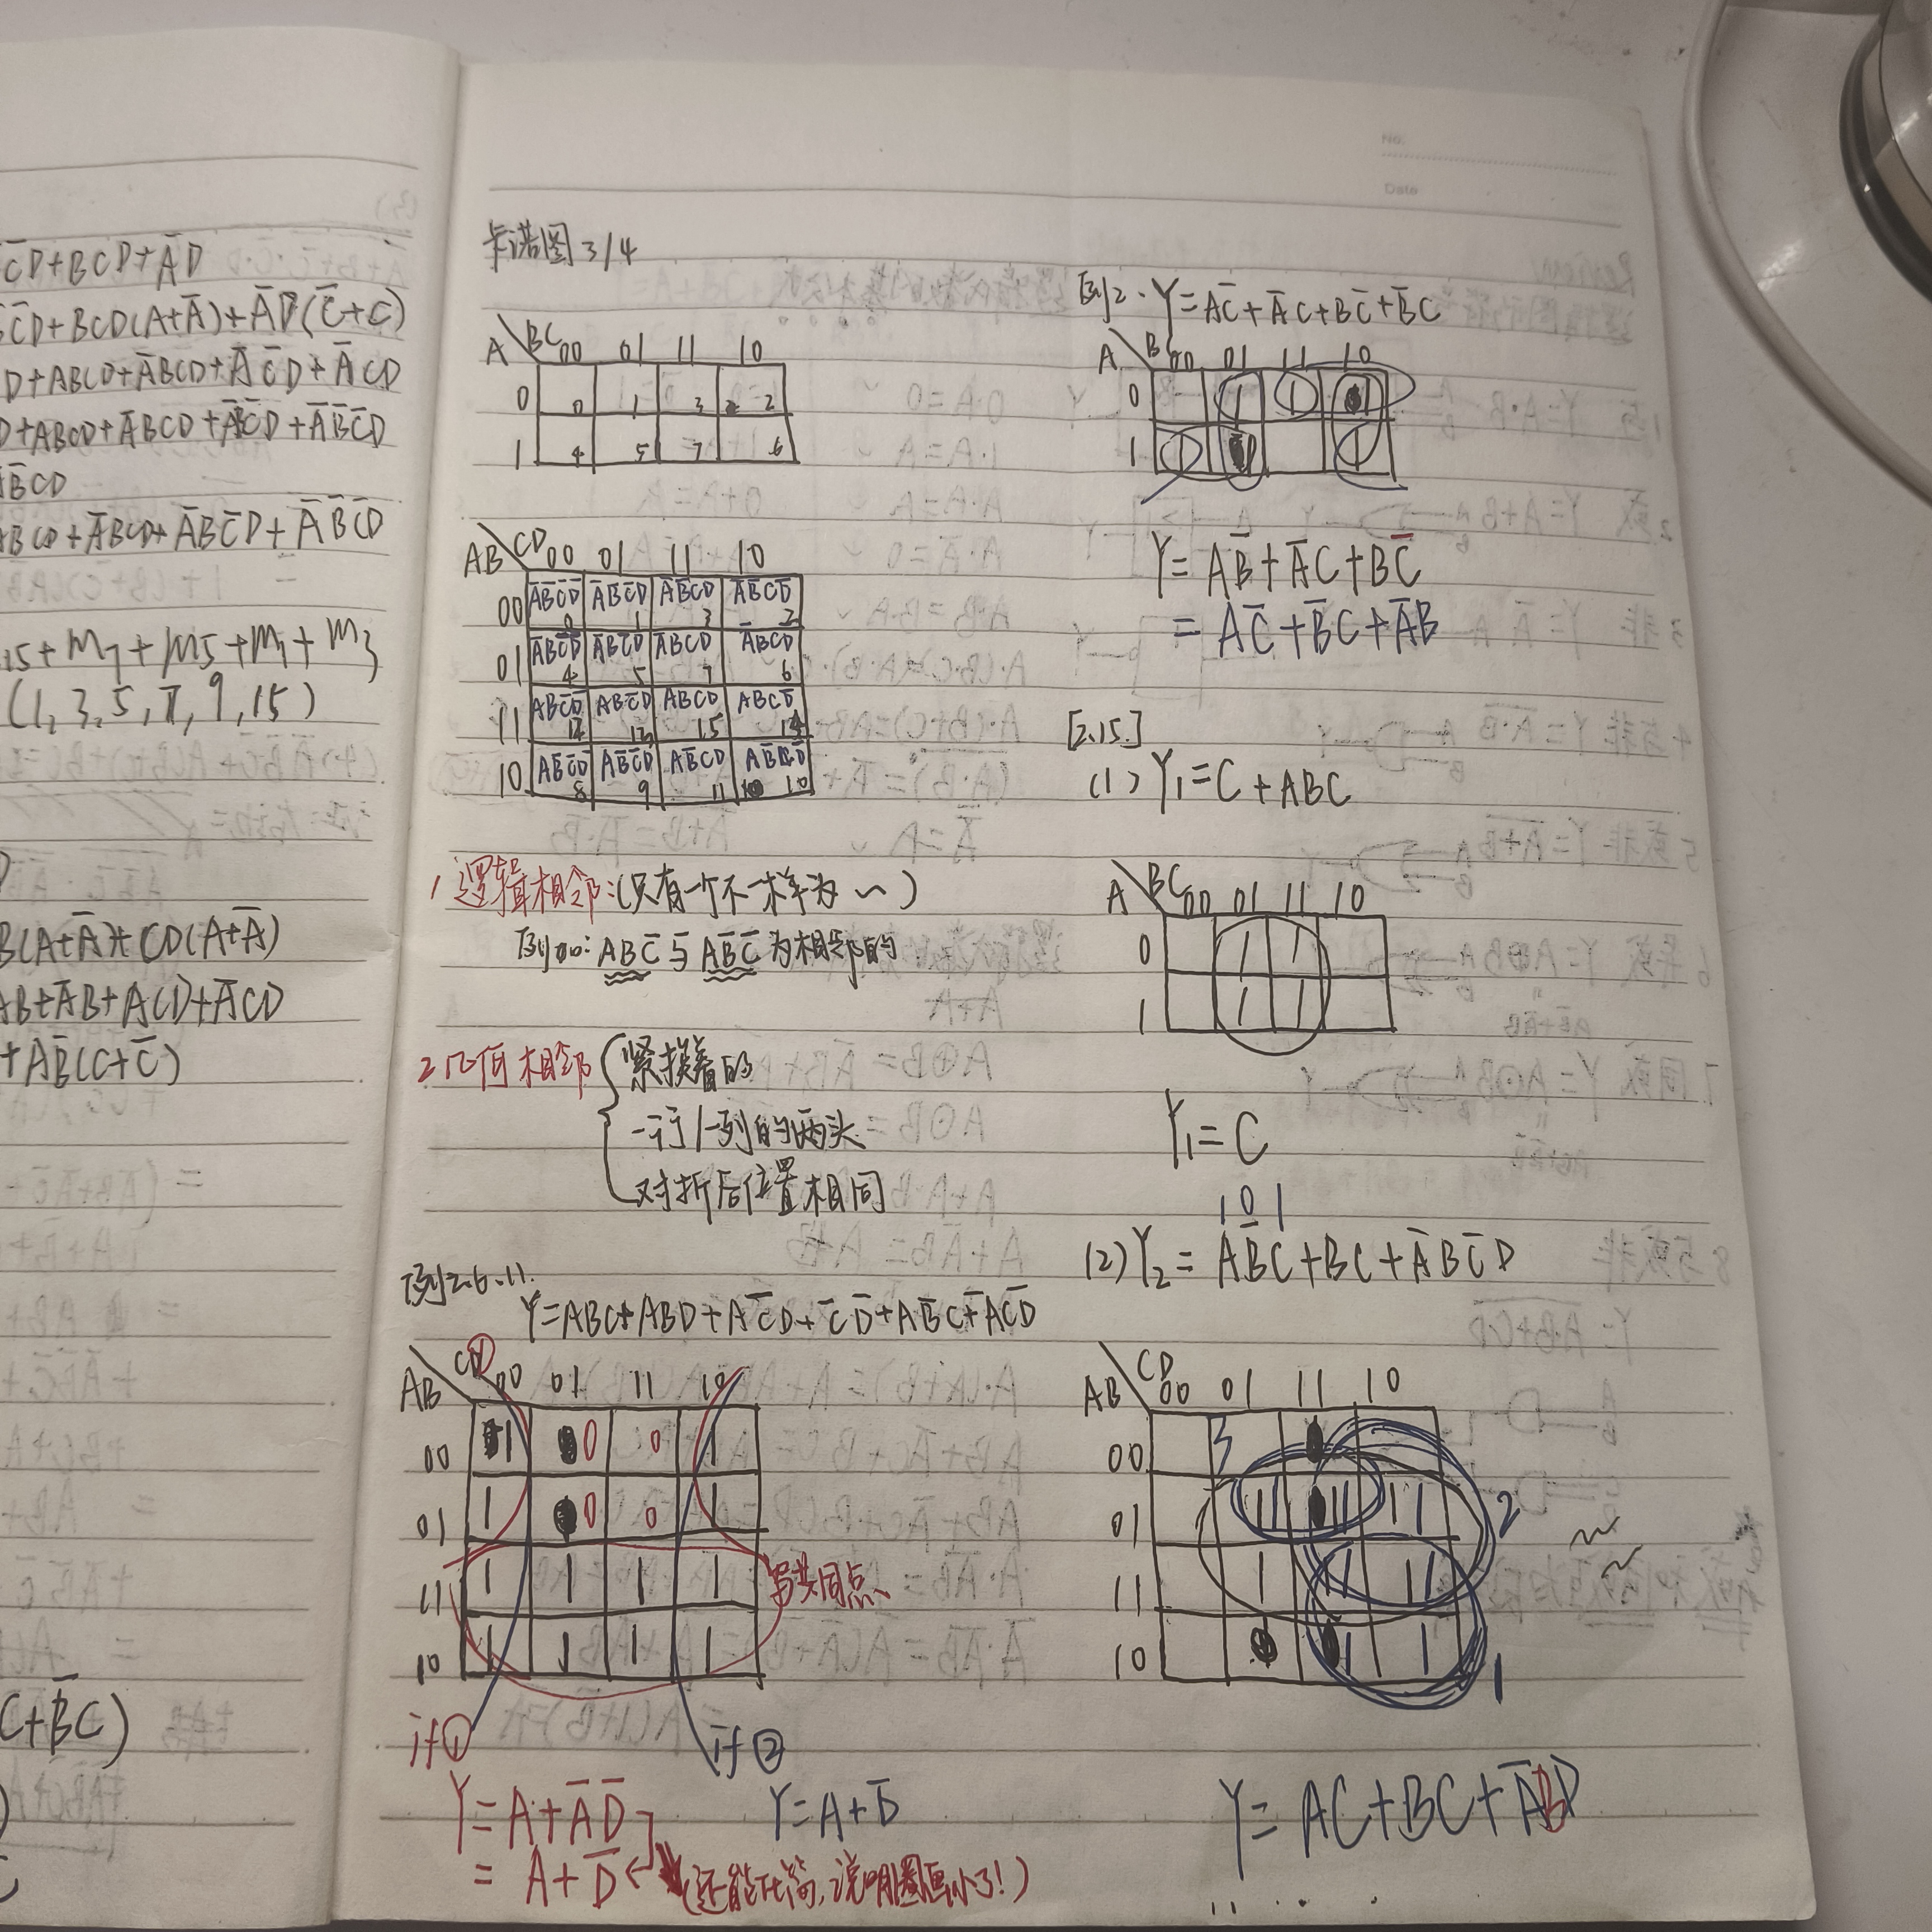 C̅D+BCD+A̅D
C̅D+BCD(A+A̅)+A̅D(C̅+C)
D+ABCD+A̅BCD+A̅C̅D+A̅CD
D+ABCD+A̅BCD+A̅BC̅D+A̅B̅C̅D
A̅B̅CD
ABCD+A̅BCD+A̅BC̅D+A̅B̅C̅D
15+m7+m5+m1+m3
(1,3,5,7,9,15)
B(A+A̅)+CD(A+A̅)
AB+A̅B+ACD+A̅CD
+AB̅(C+C̅)
C+B̅C)
No.
Date
卡诺图 3/4
A BC 00 01 11 10
0 0 1 3 2
1 4 5 7 6
AB CD 00 01 11 10
00 A̅B̅C̅D̅ A̅B̅C̅D A̅B̅CD A̅B̅CD̅
0 1 3 2
01 A̅BC̅D̅ A̅BC̅D A̅BCD A̅BCD̅
4 5 7 6
11 ABC̅D̅ ABC̅D ABCD ABCD̅
12 13 15 14
10 AB̅C̅D̅ AB̅C̅D AB̅CD AB̅CD̅
8 9 11 10
1 逻辑相邻:(只有一个不一样为~)
例如: ABC̅ 与 AB̅C̅ 为相邻的
2 几何相邻
紧挨着的
一行/一列的两头
对折后位置相同
例2.6.11.
Y=ABC+ABD+AC̅D+C̅D̅+AB̅C+A̅CD̅
AB CD 00 01 11 10
00 1 0 0 1
01 1 0 0 1
11 1 1 1 1
10 1 1 1 1
写共同点
if① if②
Y=A+A̅D̅ Y=A+D̅
=A+D̅ (还能化简,说明圈画小了!)
例2. Y=AC̅+A̅C+BC̅+B̅C
A B 00 01 11 10
0 1 1 1
1 1 1 1
Y=AB̅+A̅C+BC̅
=AC̅+B̅C+A̅B
[2.15.]
(1) Y1=C+ABC
A BC 00 01 11 10
0 1 1
1 1 1
Y1=C
1 0 1
(2) Y2=AB̅C+BC+A̅BC̅D
AB CD 00 01 11 10
00 3
01 11 111 11 2
11 1 11 11
10 1 1 1
1
Y=AC+BC+A̅BD